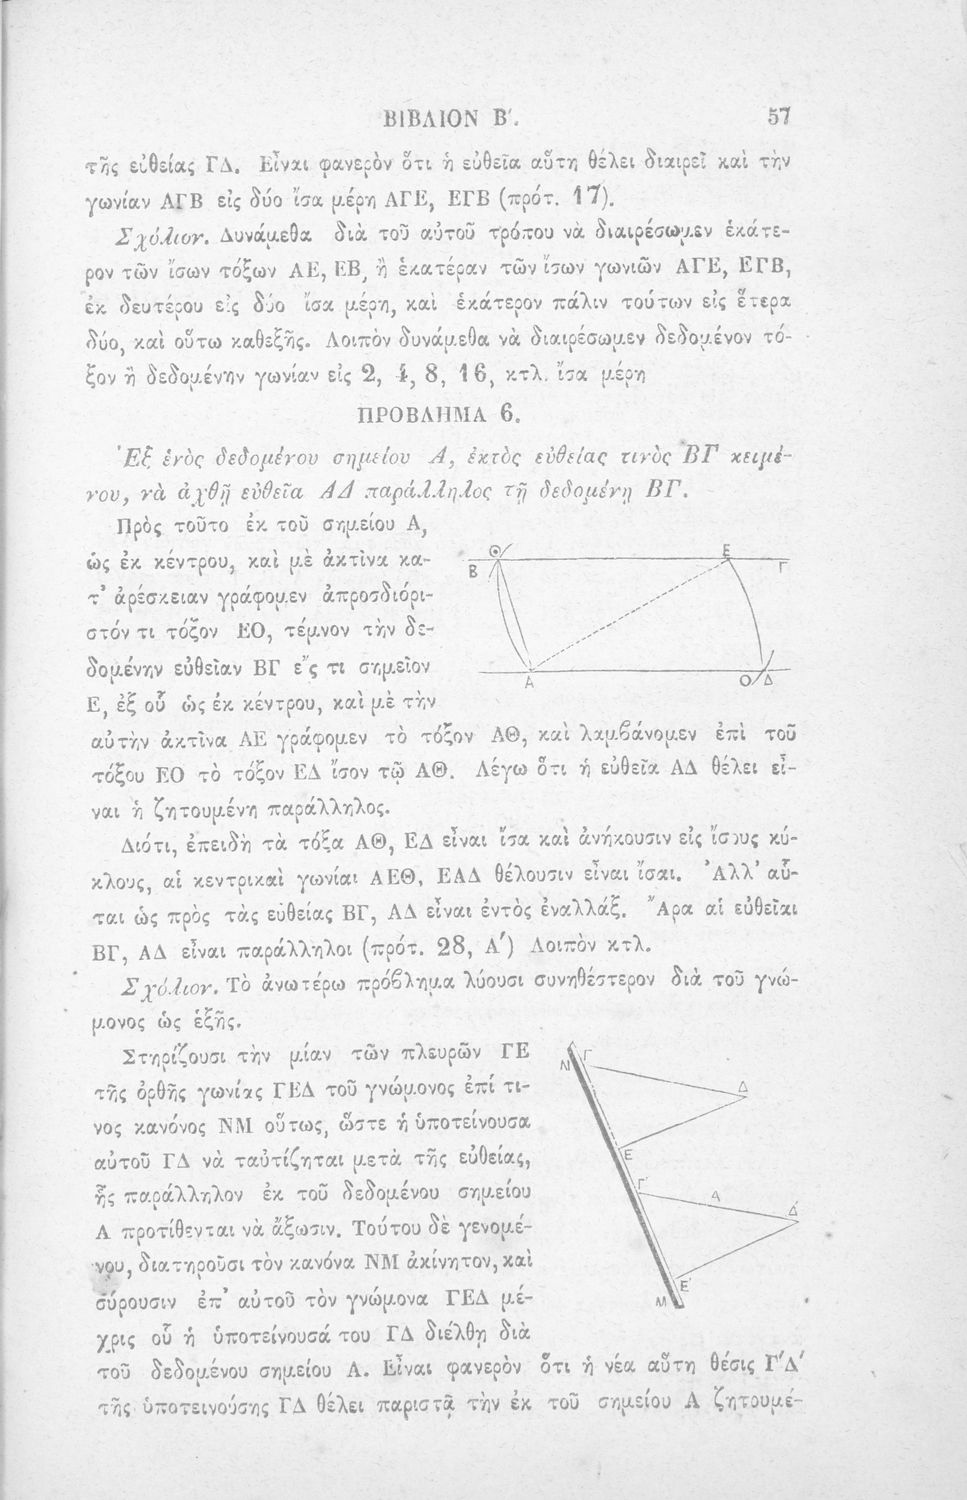 ΒΙΒΛΙΟΝ Β΄. 57
τῆς εὐθείας ΓΔ. Εἶναι φανερὸν ὅτι ἡ εὐθεῖα αὕτη θέλει διαιρεῖ καὶ τὴν
γωνίαν ΑΓΒ εἰς δύο ἴσα μέρη ΑΓΕ, ΕΓΒ (πρότ. 17).
Σχόλιον. Δυνάμεθα διὰ τοῦ αὐτοῦ τρόπου νὰ διαιρέσωμεν ἑκάτε-
ρον τῶν ἴσων τόξων ΑΕ, ΕΒ, ἢ ἑκατέραν τῶν ἴσων γωνιῶν ΑΓΕ, ΕΓΒ,
ἐκ δευτέρου εἰς δύο ἴσα μέρη, καὶ ἑκάτερον πάλιν τούτων εἰς ἕτερα
δύο, καὶ οὕτω καθεξῆς. Λοιπὸν δυνάμεθα νὰ διαιρέσωμεν δεδομένον τό-
ξον ἢ δεδομένην γωνίαν εἰς 2, 4, 8, 16, κτλ. ἴσα μέρη
ΠΡΟΒΛΗΜΑ 6.
Ἐξ ἑνὸς δεδομένου σημείου Α, ἐκτὸς εὐθείας τινὸς ΒΓ κειμέ-
νου, νὰ ἀχθῇ εὐθεῖα ΑΔ παράλληλος τῇ δεδομένῃ ΒΓ.
Πρὸς τοῦτο ἐκ τοῦ σημείου Α,
ὡς ἐκ κέντρου, καὶ μὲ ἀκτῖνα κα-
τ' ἀρέσκειαν γράφομεν ἀπροσδιόρι-
στόν τι τόξον ΕΟ, τέμνον τὴν δε-
δομένην εὐθεῖαν ΒΓ εἴς τι σημεῖον
Ε, ἐξ οὗ ὡς ἐκ κέντρου, καὶ μὲ τὴν
αὐτὴν ἀκτῖνα ΑΕ γράφομεν τὸ τόξον ΑΘ, καὶ λαμβάνομεν ἐπὶ τοῦ
τόξου ΕΟ τὸ τόξον ΕΔ ἴσον τῷ ΑΘ. Λέγω ὅτι ἡ εὐθεῖα ΑΔ θέλει εἶ-
ναι ἡ ζητουμένη παράλληλος.
Θ Ε
Β Γ
Α Ο Δ
Διότι, ἐπειδὴ τὰ τόξα ΑΘ, ΕΔ εἶναι ἴσα καὶ ἀνήκουσιν εἰς ἴσους κύ-
κλους, αἱ κεντρικαὶ γωνίαι ΑΕΘ, ΕΑΔ θέλουσιν εἶναι ἴσαι. Ἀλλ' αὗ-
ται ὡς πρὸς τὰς εὐθείας ΒΓ, ΑΔ εἶναι ἐντὸς ἐναλλάξ. Ἄρα αἱ εὐθεῖαι
ΒΓ, ΑΔ εἶναι παράλληλοι (πρότ. 28, Α΄) Λοιπὸν κτλ.
Σχόλιον. Τὸ ἀνωτέρω πρόβλημα λύουσι συνηθέστερον διὰ τοῦ γνώ-
μονος ὡς ἑξῆς.
Στηρίζουσι τὴν μίαν τῶν πλευρῶν ΓΕ
τῆς ὀρθῆς γωνίας ΓΕΔ τοῦ γνώμονος ἐπί τι-
νος κανόνος ΝΜ οὕτως, ὥστε ἡ ὑποτείνουσα
αὐτοῦ ΓΔ νὰ ταὐτίζηται μετὰ τῆς εὐθείας,
ἧς παράλληλον ἐκ τοῦ δεδομένου σημείου
Α προτίθενται νὰ ἄξωσιν. Τούτου δὲ γενομέ-
νου, διατηροῦσι τὸν κανόνα ΝΜ ἀκίνητον, καὶ
σύρουσιν ἐπ' αὐτοῦ τὸν γνώμονα ΓΕΔ μέ-
χρις οὗ ἡ ὑποτείνουσά του ΓΔ διέλθῃ διὰ
τοῦ δεδομένου σημείου Α. Εἶναι φανερὸν ὅτι ἡ νέα αὕτη θέσις Γ΄Δ΄
τῆς ὑποτεινούσης ΓΔ θέλει παριστᾷ τὴν ἐκ τοῦ σημείου Α ζητουμέ-
Ν Γ
Δ
Ε
Γ΄
Α
Δ΄
Ε΄
Μ